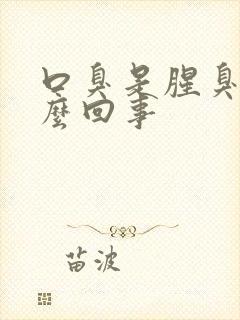 口臭是腥臭
麼回事
苗波